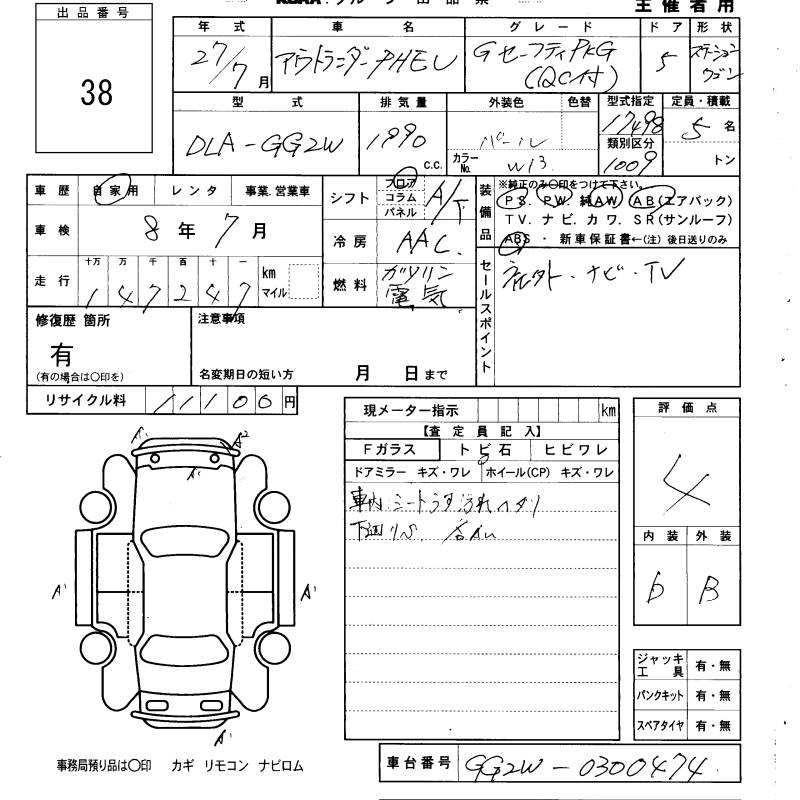 主催者用
出品番号
38
年式 車名 グレード ドア 形状
27/7月 アウトランダーPHEV Gセーフティ PKG (QC付) 5 ステーションワゴン
型式 排気量 外装色 色替 型式指定 定員・積載
DLA-GG2W 1990 c.c. パール 17498 5名
カラーNo. W13 類別区分 1009 トン
車歴 自家用 レンタ 事業.営業車
車検 8年7月
走行 十万 万 千 百 十 一
147247 km マイル
シフト フロア コラム パネル A/T
冷房 AAC
燃料 ガソリン 電気
装備品 ※純正のみ○印をつけて下さい。
PS. PW. 純AW. AB(エアバック)
TV. ナビ. カワ. SR(サンルーフ)
ABS ・ 新車保証書←(注) 後日送りのみ
セールスポイント
ナビ・TV
修復歴 箇所
有
(有の場合は○印を)
注意事項
名変期日の短い方 月 日まで
リサイクル料 11100円
現メーター指示 km
【査定員記入】
Fガラス トビ石 ヒビワレ
ドアミラー キズ・ワレ ホイール(CP) キズ・ワレ
車内 シートうす汚れ ヘタリ
下廻りS
評価点
4
内装 外装
D B
A' A2
A'
A' A'
A'
ジャッキ工具 有・無
パンクキット 有・無
スペアタイヤ 有・無
事務局預り品は○印 カギ リモコン ナビロム
車台番号 GG2W-0300474